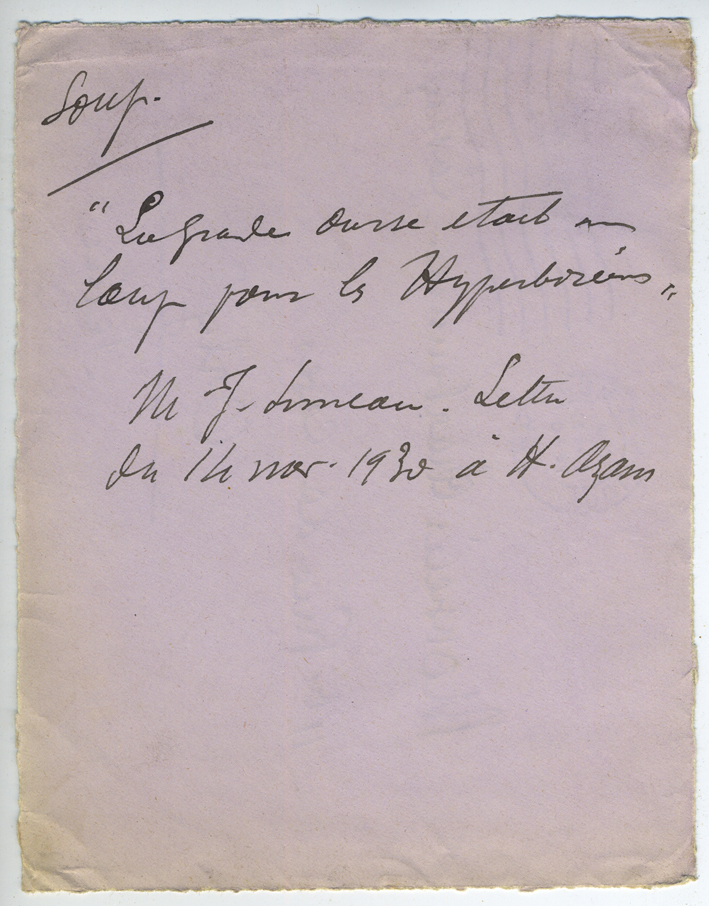 Loup.
"La grande ourse etait un
loup pour les Hyperboréens"
M J. Luneau. Lettre
du 14 nov. 1930 à H. Azam